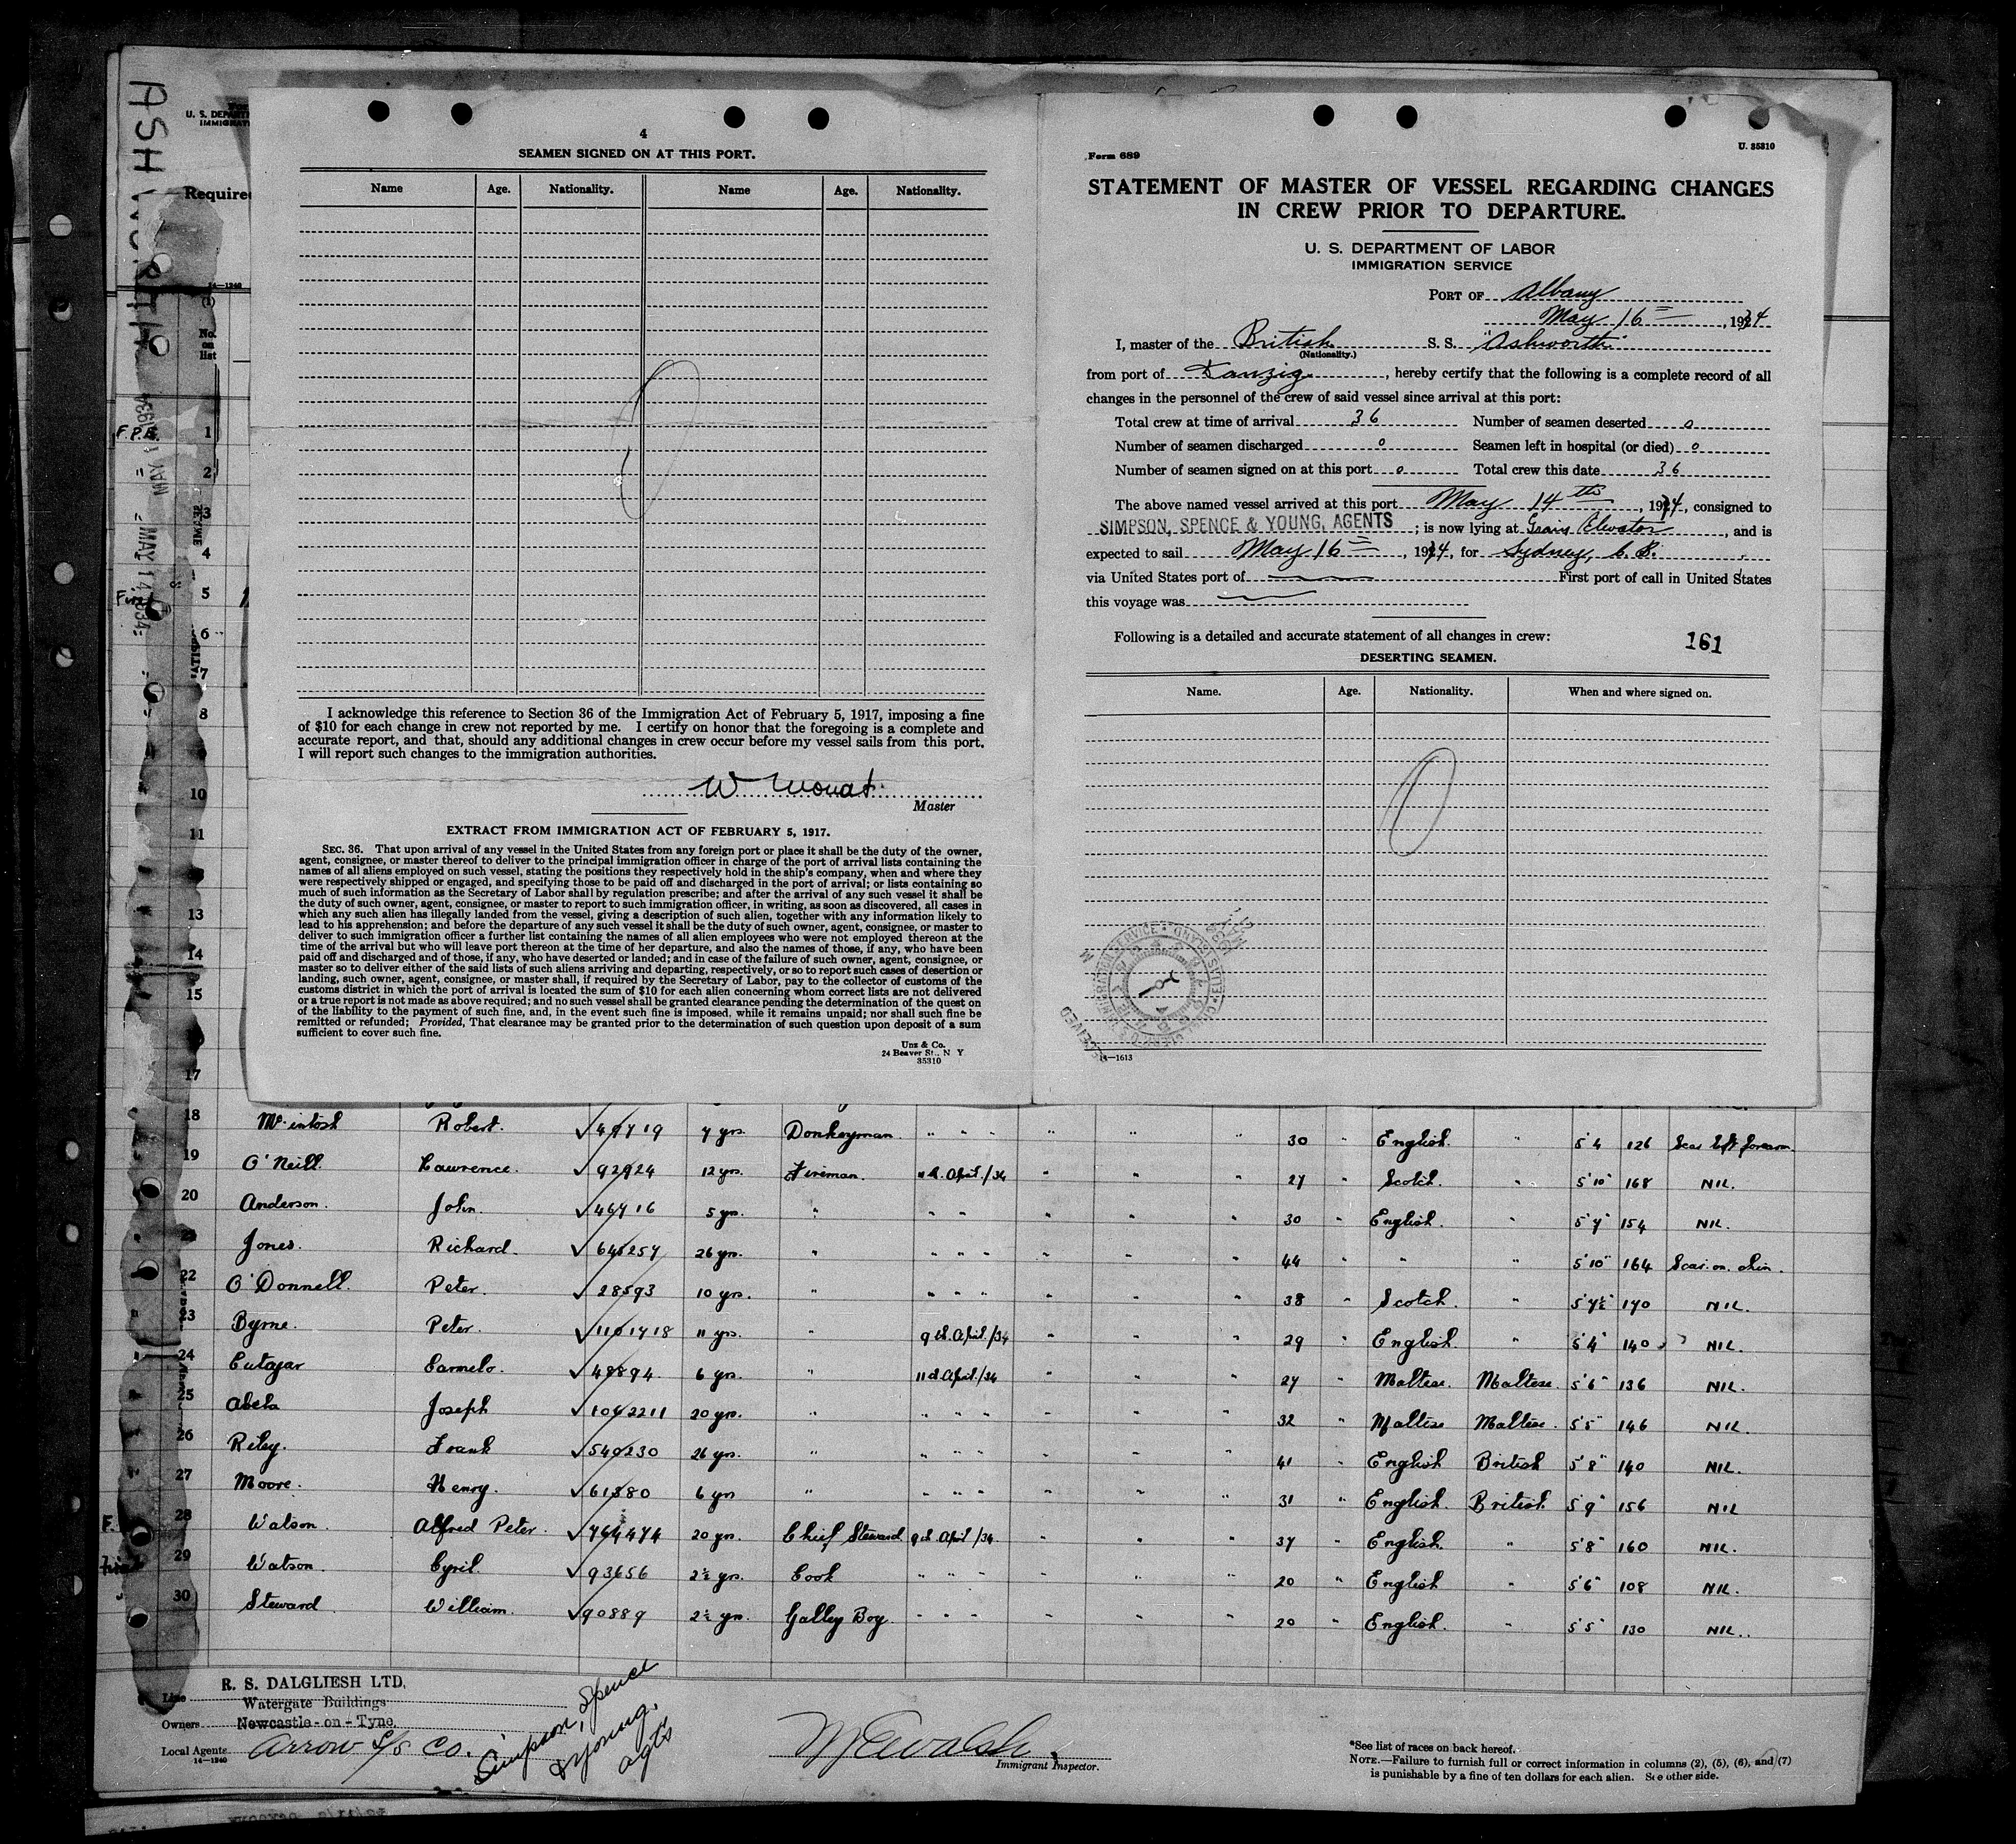 ASHWORTH
U. S. DEPART
IMMIGRAT
Required
14—1240
(1)
No.
on
list
F.P.E.
1
2
3
4
5
6
7
8
10
11
13
14
15
17
MAY 14 1934
4
SEAMEN SIGNED ON AT THIS PORT.
Name Age. Nationality. Name Age. Nationality.
0
I acknowledge this reference to Section 36 of the Immigration Act of February 5, 1917, imposing a fine
of $10 for each change in crew not reported by me. I certify on honor that the foregoing is a complete and
accurate report, and that, should any additional changes in crew occur before my vessel sails from this port,
I will report such changes to the immigration authorities.
W Mouat
Master
EXTRACT FROM IMMIGRATION ACT OF FEBRUARY 5, 1917.
SEC. 36. That upon arrival of any vessel in the United States from any foreign port or place it shall be the duty of the owner,
agent, consignee, or master thereof to deliver to the principal immigration officer in charge of the port of arrival lists containing the
names of all aliens employed on such vessel, stating the positions they respectively hold in the ship's company, when and where they
were respectively shipped or engaged, and specifying those to be paid off and discharged in the port of arrival; or lists containing so
much of such information as the Secretary of Labor shall by regulation prescribe; and after the arrival of any such vessel it shall be
the duty of such owner, agent, consignee, or master to report to such immigration officer, in writing, as soon as discovered, all cases in
which any such alien has illegally landed from the vessel, giving a description of such alien, together with any information likely to
lead to his apprehension; and before the departure of any such vessel it shall be the duty of such owner, agent, consignee, or master to
deliver to such immigration officer a further list containing the names of all alien employees who were not employed thereon at the
time of the arrival but who will leave port thereon at the time of her departure, and also the names of those, if any, who have been
paid off and discharged and of those, if any, who have deserted or landed; and in case of the failure of such owner, agent, consignee, or
master so to deliver either of the said lists of such aliens arriving and departing, respectively, or so to report such cases of desertion or
landing, such owner, agent, consignee, or master shall, if required by the Secretary of Labor, pay to the collector of customs of the
customs district in which the port of arrival is located the sum of $10 for each alien concerning whom correct lists are not delivered
or a true report is not made as above required; and no such vessel shall be granted clearance pending the determination of the quest on
of the liability to the payment of such fine, and, in the event such fine is imposed, while it remains unpaid; nor shall such fine be
remitted or refunded; Provided, That clearance may be granted prior to the determination of such question upon deposit of a sum
sufficient to cover such fine.
Unz & Co.
24 Beaver St., N Y
35310
Form 689
U. 35310
STATEMENT OF MASTER OF VESSEL REGARDING CHANGES
IN CREW PRIOR TO DEPARTURE.
U. S. DEPARTMENT OF LABOR
IMMIGRATION SERVICE
PORT OF Albany
May 16 =, 1934
I, master of the British S. S. "Ashworth"
(Nationality.)
from port of Danzig, hereby certify that the following is a complete record of all
changes in the personnel of the crew of said vessel since arrival at this port:
Total crew at time of arrival 36 Number of seamen deserted 0
Number of seamen discharged 0 Seamen left in hospital (or died) 0
Number of seamen signed on at this port 0 Total crew this date 36
The above named vessel arrived at this port May 14th, 1934, consigned to
SIMPSON, SPENCE & YOUNG, AGENTS; is now lying at Grain Elevator, and is
expected to sail May 16 =, 1934, for Sydney, C. B.
via United States port of First port of call in United States
this voyage was
Following is a detailed and accurate statement of all changes in crew:
161
DESERTING SEAMEN.
Name. Age. Nationality. When and where signed on.
0
RECEIVED
14—1613
18 McIntosh Robert. 49719 7 yrs. Donkeyman. " " " " " " 30 " English. " 5'4 126 Scar left forearm.
19 O'Neill. Lawrence. 92924 12 yrs. Fireman. April/34 " " " 27 " Scotch. " 5'10" 168 NIL.
20 Anderson. John. 46716 5 yrs. " " " " " " 30 " English. " 5'7" 154 NIL.
21 Jones. Richard. 645257 26 yrs. " " " " " " " " 44 " " " 5'10" 164 Scar on chin.
22 O'Donnell. Peter. 28593 10 yrs. " " " " " " " 38 " Scotch. " 5'7½" 170 NIL.
23 Byrne. Peter. 1101718 11 yrs. " 9th April/34 " " " 29 " English. " 5'4" 140 NIL.
24 Cutajar Carmelo. 48894 6 yrs. " 11th April/34 " " " 27 " Maltese. Maltese. 5'6" 136 NIL.
25 Abela Joseph 1062211 20 yrs. " " " " " " " 32 " Maltese Maltese. 5'5" 146 NIL.
26 Riley. Frank 540230 26 yrs. " " " " " " " 41 " English British 5'8" 140 NIL.
27 Moore. Henry. 61380 6 yrs " " " " " " " 31 " English. British. 5'9" 156 NIL
28 Watson. Alfred Peter. 764474 20 yrs. Chief Steward 9th April/34. " " " 37 " English. " 5'8" 160 NIL.
29 Watson Cyril. 93656 2½ yrs. Cook " " " " " " 20 " English " 5'6" 108 NIL.
30 Steward William. 90889 2½ yrs. Galley Boy. " " " " " " 20 " English. " 5'5" 130 NIL.
Line R. S. DALGLIESH LTD.
Watergate Buildings
Owners Newcastle-on-Tyne.
Local Agents Arrow S/S Co.
14—1240
Simpson, Spence
& Young,
agts
Immigrant Inspector.
*See list of races on back hereof.
NOTE.—Failure to furnish full or correct information in columns (2), (5), (6), and (7)
is punishable by a fine of ten dollars for each alien. See other side.